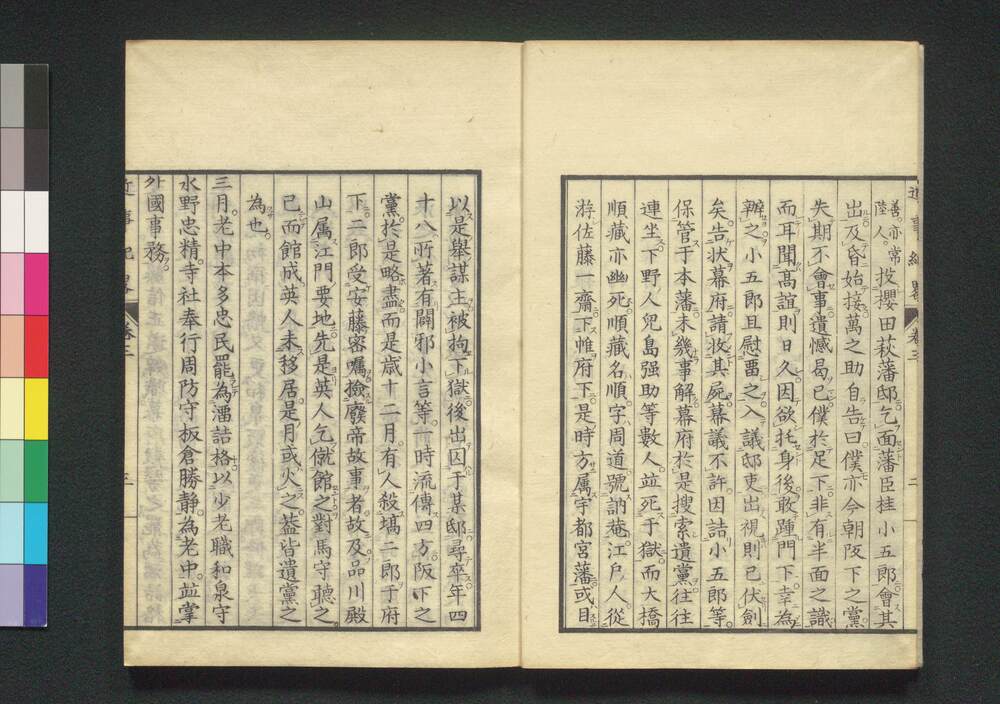 善亦常
陸人投櫻田萩藩邸乞面藩臣桂小五郎會其
出及昏始接萬之助自告曰僕亦今朝阪下之黨
失期不會事遺憾曷已僕於足下非有半面之識
而耳聞髙誼則日久因欲托身後敢踵門下幸為
辨之小五郎且慰畱之入議邸吏出視則已伏劍
矣告状幕府請收其屍幕議不許因詰小五郎等
保管于本藩未幾事解幕府於是搜索遺黨往往
連坐下野人兒島强助等數人並死于獄而大橋
順藏亦幽死順藏名順字周道號訥菴江戸人從
游佐藤一齋下帷府下是時方属宇都宮藩或目
近事紀畧
卷三
二
以是舉謀主被拘下獄後出囚于某邸尋卒年四
十八所著有闢邪小言等而時流傳四方阪下之
黨於是略盡而是歳十二月有人殺塙二郎于府
下二郎受安藤密囑撿廢帝故事者故及品川殿
山属江門要地先是英人乞僦館之對馬守聽之
已而館成英人未移居是月或火之葢皆遺黨之
為也
三月老中本多忠民罷為溜詰格以少老職和泉守
水野忠精寺社奉行周防守板倉勝静為老中並掌
外國事務
近事紀畧
卷三
三